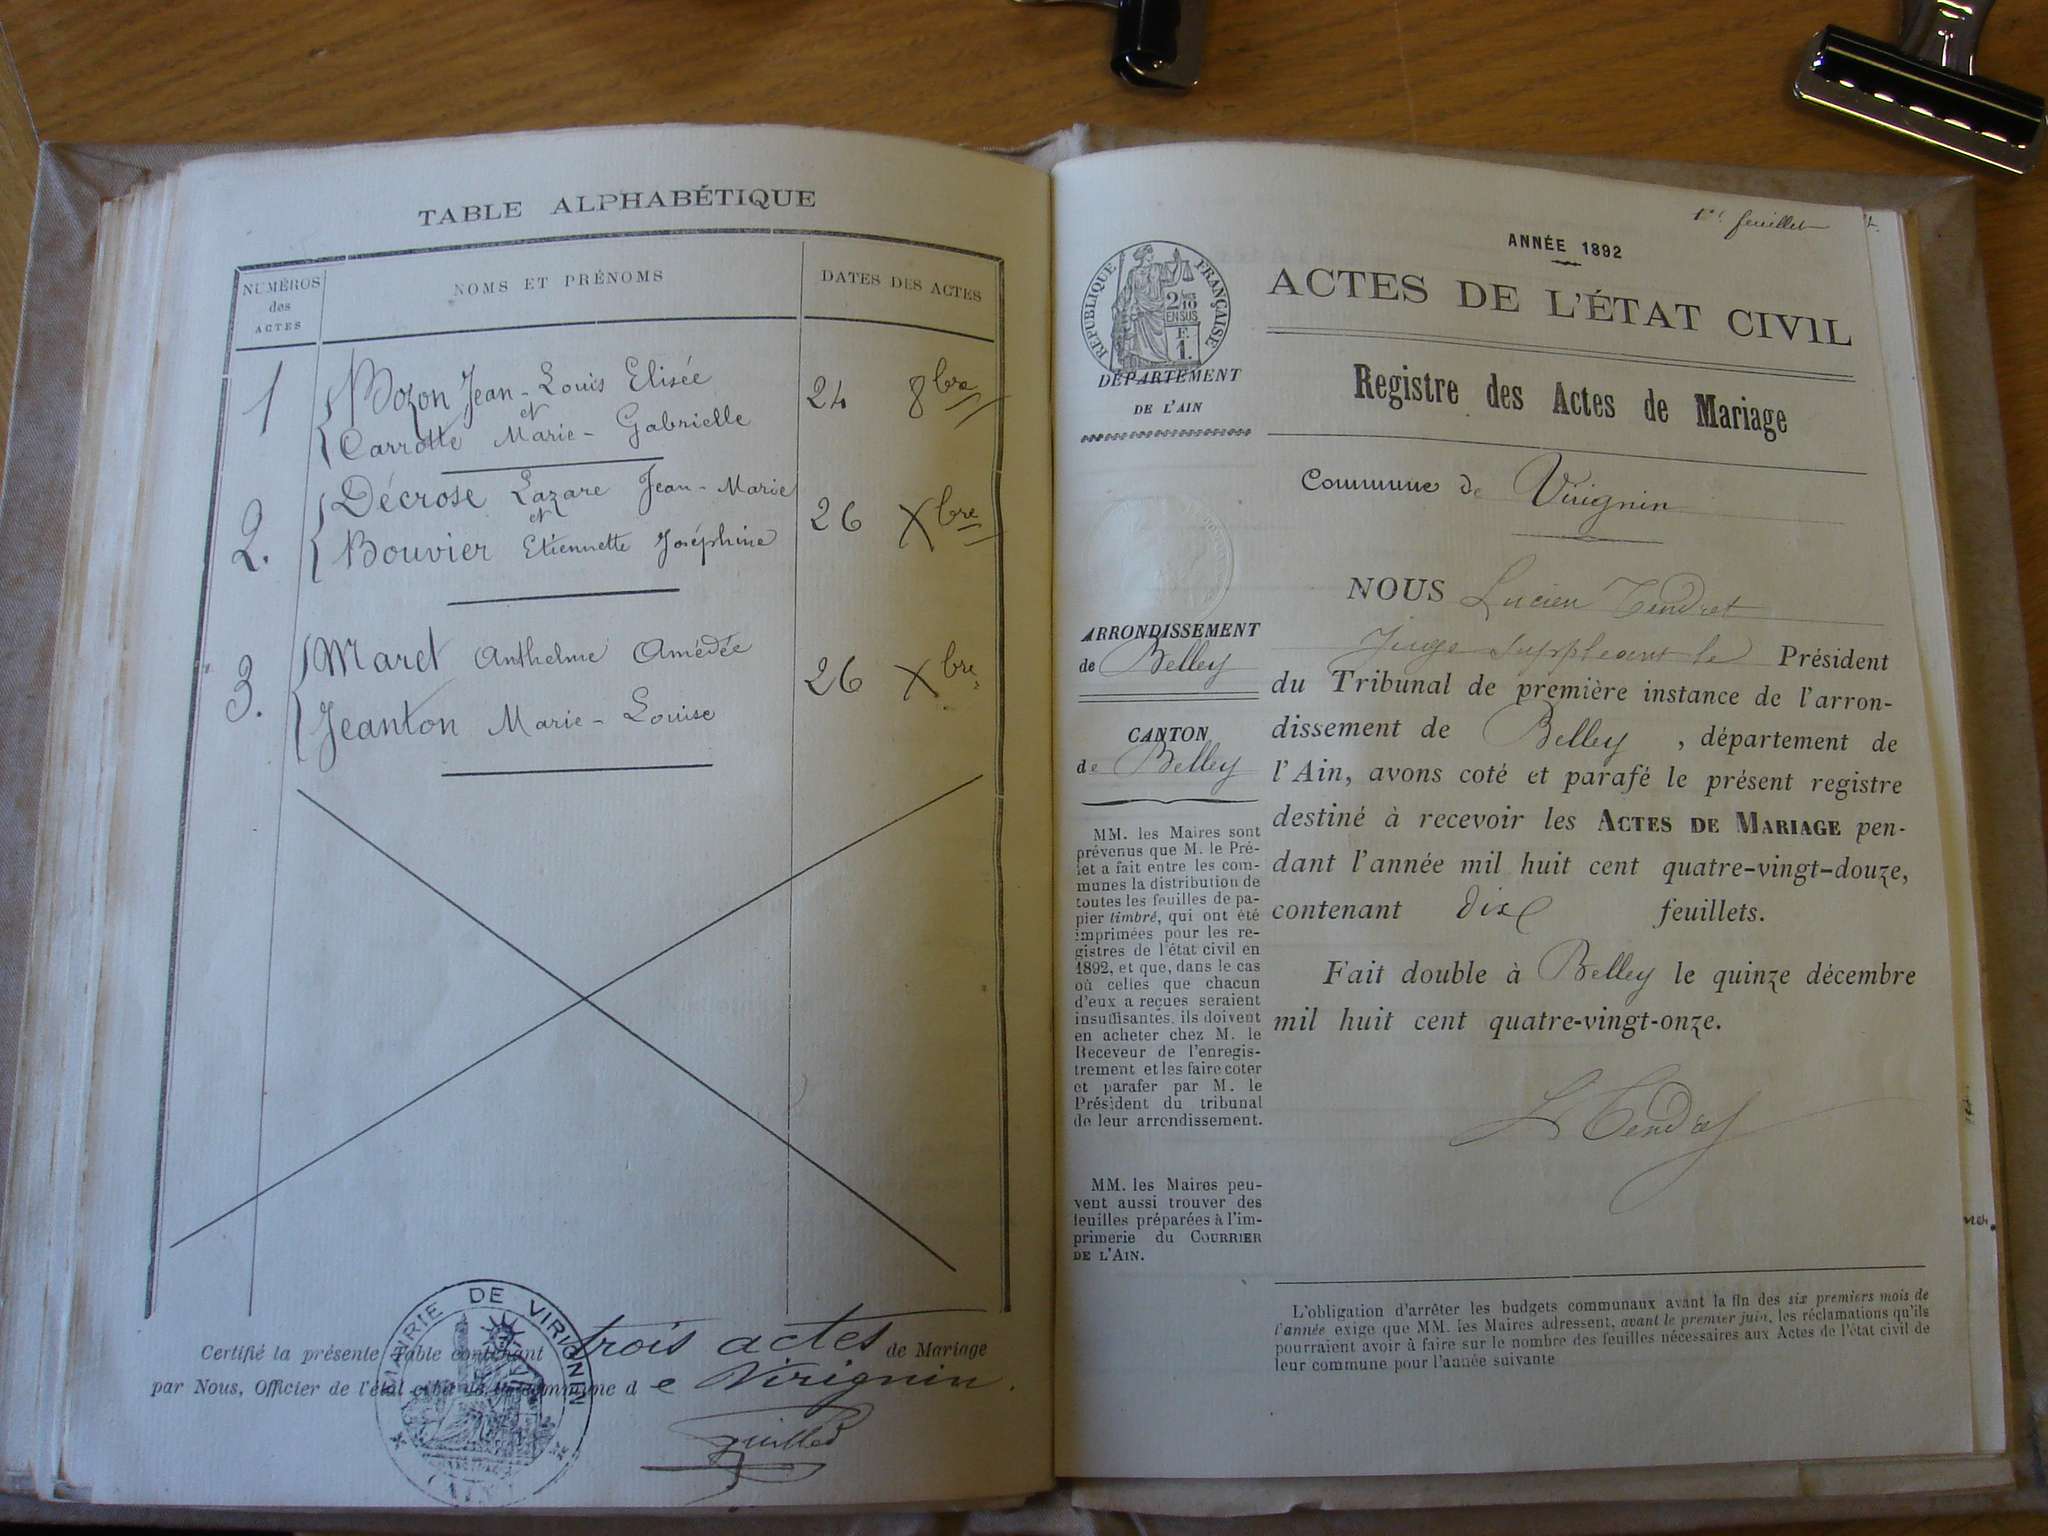 TABLE ALPHABÉTIQUE
NUMÉROS des ACTES
NOMS ET PRÉNOMS
DATES DES ACTES
1 Bozon Jean-Louis Elisée 24 8bre
et
Carrotte Marie-Gabrielle
2. Décrose Lazare Jean-Marie 26 Xbre
et
Bouvier Etiennette Joséphine
3. Maret Anthelme Amédée 26 Xbre
Jeanton Marie-Louise
Certifié la présente Table contenant trois actes de Mariage
par Nous, Officier de l'état civil de la commune de Virignin.
MAIRIE DE VIRIGNEN
(AIN)
1er feuillet
ANNÉE 1892
ACTES DE L'ÉTAT CIVIL
Registre des Actes de Mariage
Commune de Virignin
RÉPUBLIQUE FRANÇAISE
2/10 EN SUS
F. 1.
DÉPARTEMENT
DE L'AIN
ARRONDISSEMENT
de Belley
CANTON
de Belley
MM. les Maires sont
prévenus que M. le Pré-
fet a fait entre les com-
munes la distribution de
toutes les feuilles de pa-
pier timbré, qui ont été
imprimées pour les re-
gistres de l'état civil en
1892, et que, dans le cas
où celles que chacun
d'eux a reçues seraient
insuffisantes, ils doivent
en acheter chez M. le
Receveur de l'enregis-
trement et les faire coter
et parafer par M. le
Président du tribunal
de leur arrondissement.
MM. les Maires peu-
vent aussi trouver des
feuilles préparées à l'im-
primerie du COURRIER
DE L'AIN.
NOUS Lucien Tendret
Juge suppléant le Président
du Tribunal de première instance de l'arron-
dissement de Belley, département de
l'Ain, avons coté et parafé le présent registre
destiné à recevoir les ACTES DE MARIAGE pen-
dant l'année mil huit cent quatre-vingt-douze,
contenant dix feuillets.
Fait double à Belley le quinze décembre
mil huit cent quatre-vingt-onze.
L Tendret
L'obligation d'arrêter les budgets communaux avant la fin des six premiers mois de
l'année exige que MM. les Maires adressent, avant le premier juin, les réclamations qu'ils
pourraient avoir à faire sur le nombre des feuilles nécessaires aux Actes de l'état civil de
leur commune pour l'année suivante